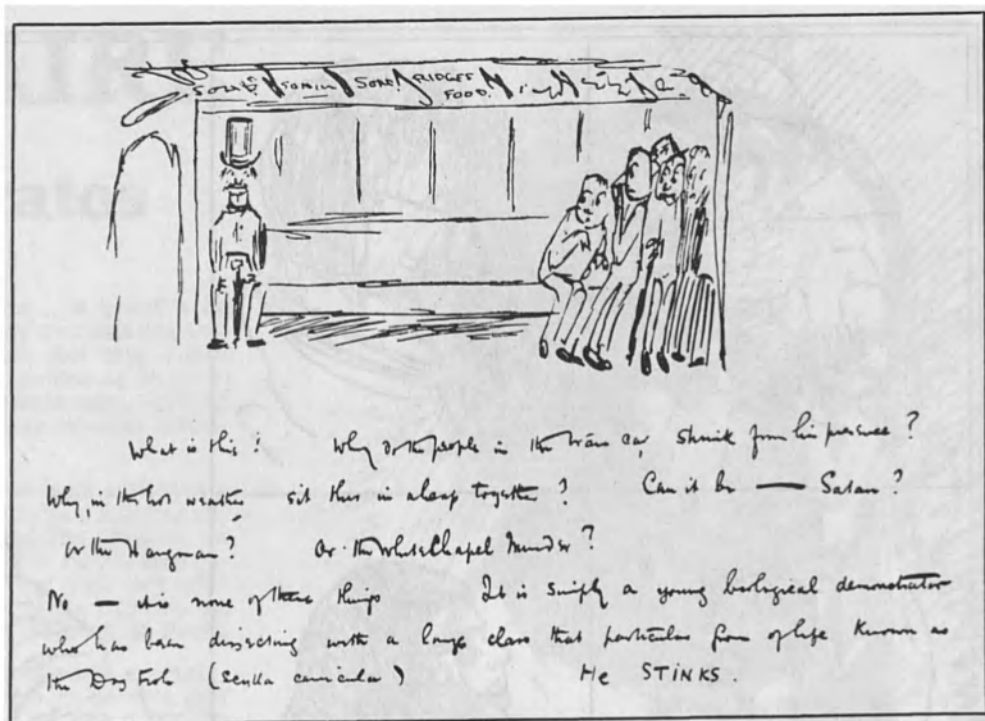 SOAP! RIDGES
FOOD!
What is this? Why do the people in the tram car, shrink from his presence?
Why, in the hot weather sit thus in a heap together? Can it be — Satan?
Or the Hangman? Or the WhiteChapel Murder?
No — it is none of these things It is simply a young biological demonstrator
who has been dissecting with a large class that particular form of life known as
the Dog Fish (Scylla canicula) He STINKS.